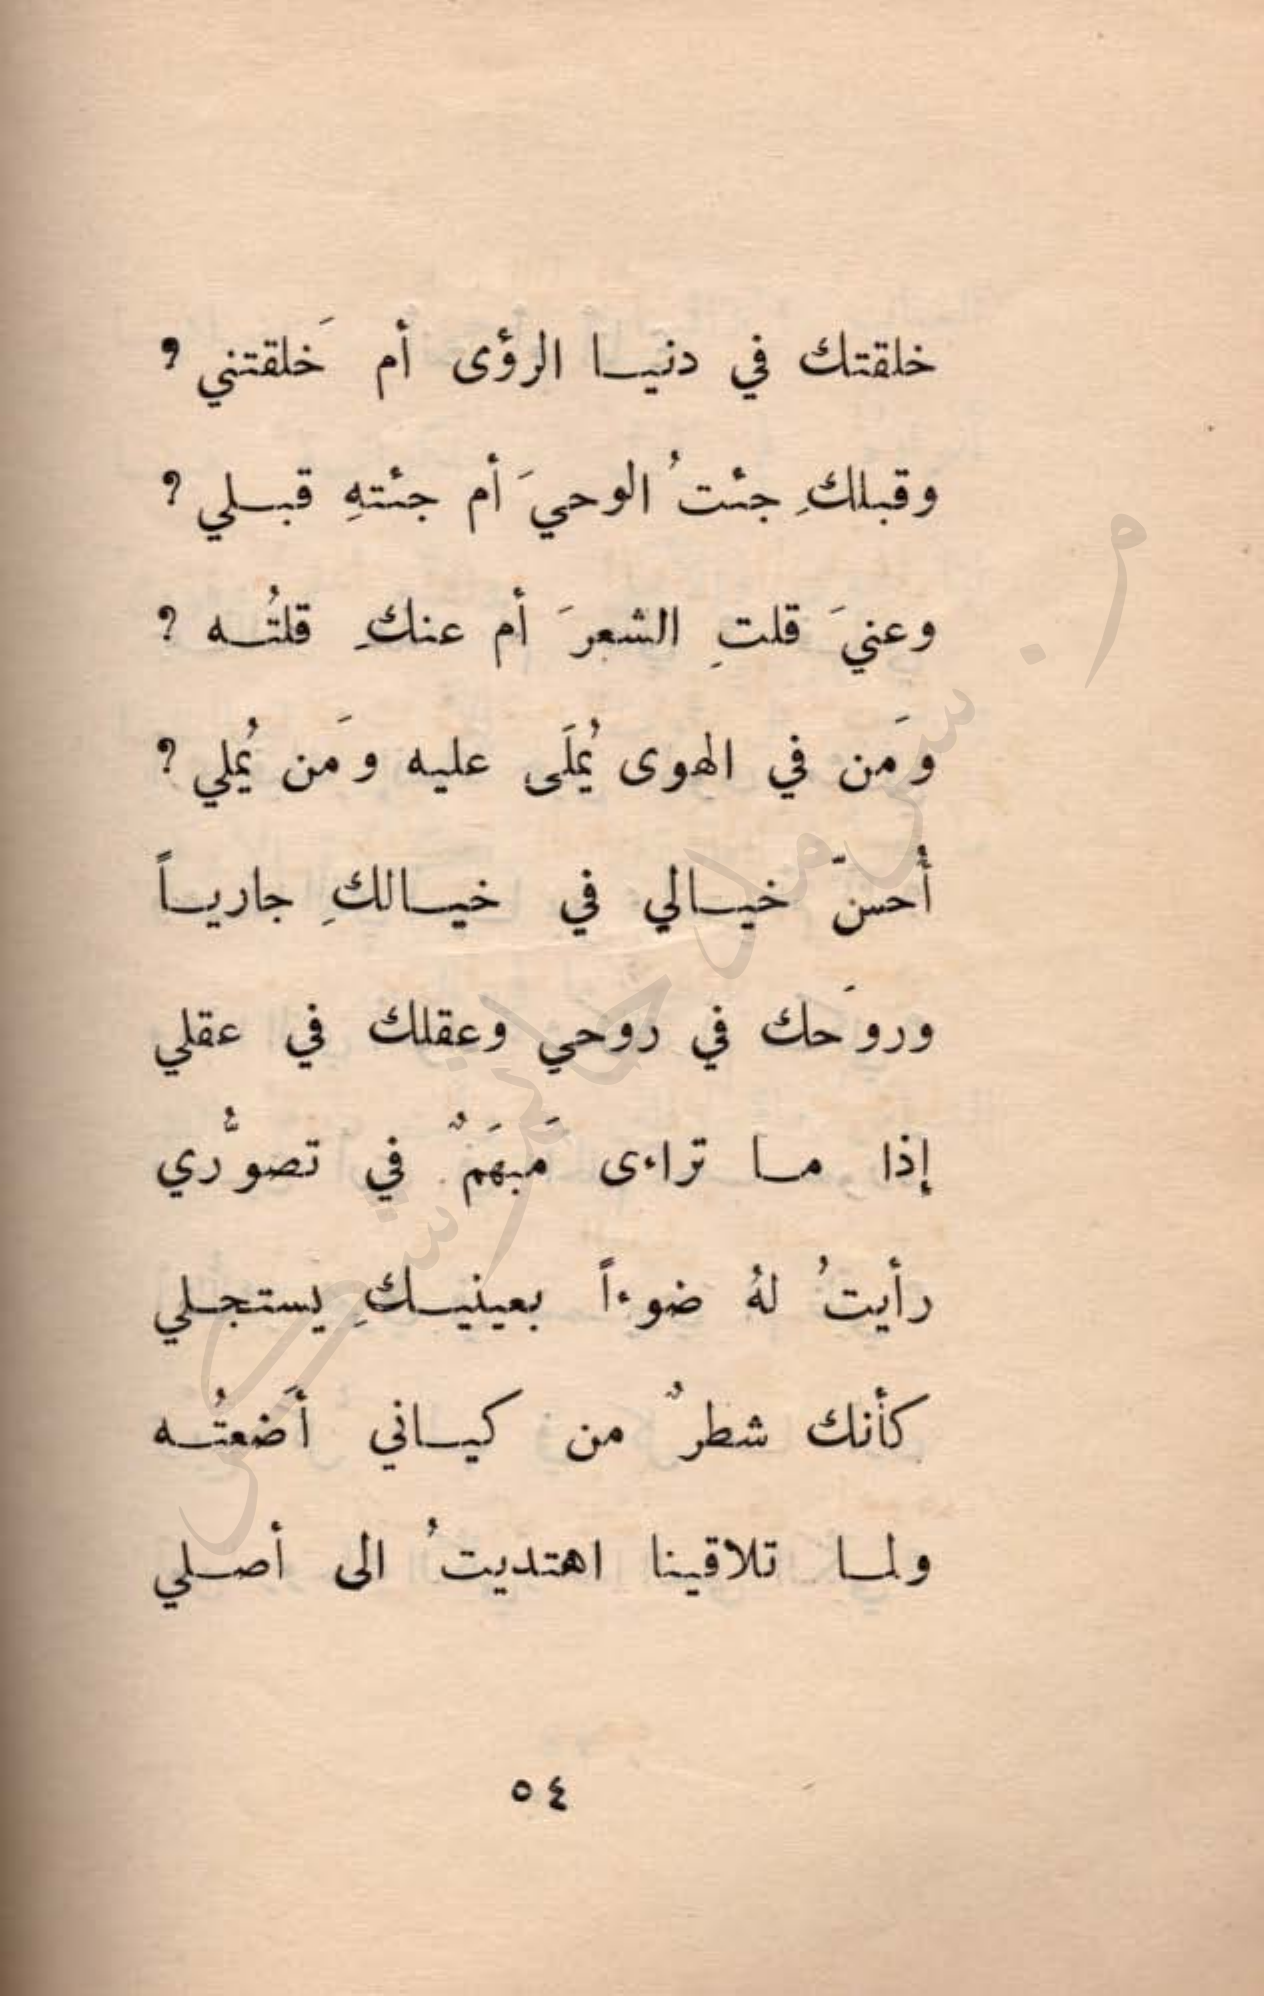 خلقتك في دنيـا الرؤى أم خَلقتني ؟
وقبلكِ جئتُ الوحيَ أم جئتهِ قبـلي ؟
وعنيَ قلتِ الشعرَ أم عنكِ قلتُـه ؟
وَمن في الهوى يُملَى عليه وَمن يُملي ؟
أُحسّ خيـالي في خيـالكِ جاريـاً
وروَحك في روحي وعقلك في عقلي
إذا مـا تراءى مَبهَمٌ في تصوُّري
رأيتُ لهُ ضوءاً بعينيـكِ يستجـلي
كأنك شطرٌ من كيـاني أَضعتُـه
ولمـا تلاقينا اهتديتُ الى أصـلي
٥٤